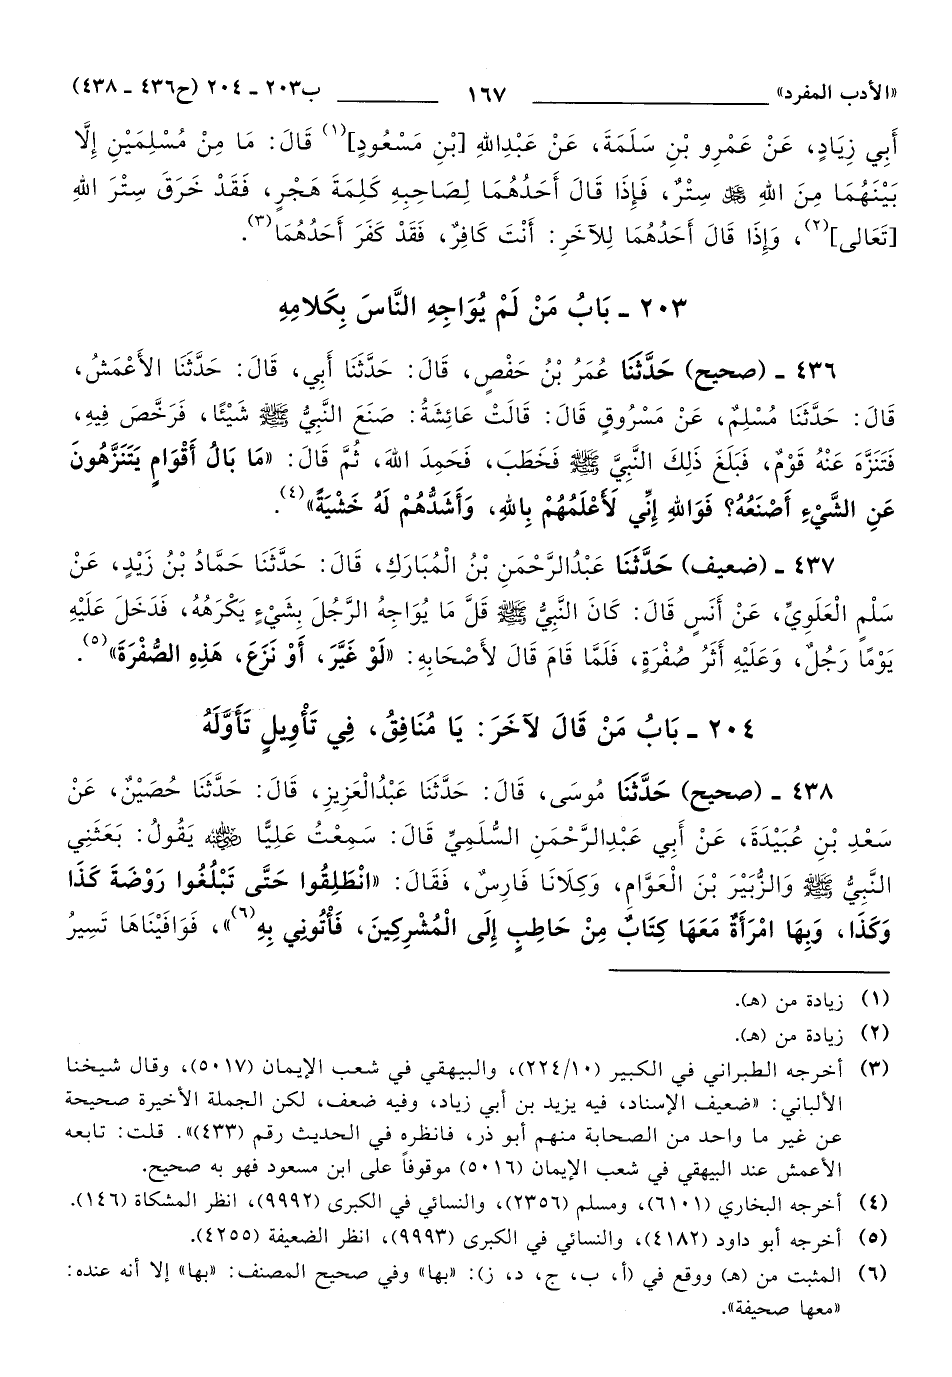 «الأدب المفرد» ١٦٧ ب٢٠٣ ـ ٢٠٤ (ح٤٣٦ ـ ٤٣٨)
أَبِي زِيَادٍ، عَنْ عَمْرِو بْنِ سَلَمَةَ، عَنْ عَبْدِاللهِ [بْنِ مَسْعُودٍ]<sup>(١)</sup> قَالَ: مَا مِنْ مُسْلِمَيْنِ إِلَّا
بَيْنَهُمَا مِنَ اللهِ ﷻ سِتْرٌ، فَإِذَا قَالَ أَحَدُهُمَا لِصَاحِبِهِ كَلِمَةَ هَجْرٍ، فَقَدْ خَرَقَ سِتْرَ اللهِ
[تَعَالى]<sup>(٢)</sup>، وَإِذَا قَالَ أَحَدُهُمَا لِلآخَرِ: أَنْتَ كَافِرٌ، فَقَدْ كَفَرَ أَحَدُهُمَا<sup>(٣)</sup>.
٢٠٣ ـ بَابُ مَنْ لَمْ يُوَاجِهِ النَّاسَ بِكَلامِهِ
٤٣٦ ـ (صحيح) حَدَّثَنَا عُمَرُ بْنُ حَفْصٍ، قَالَ: حَدَّثَنَا أَبِي، قَالَ: حَدَّثَنَا الأَعْمَشُ،
قَالَ: حَدَّثَنَا مُسْلِمٌ، عَنْ مَسْرُوقٍ قَالَ: قَالَتْ عَائِشَةُ: صَنَعَ النَّبِيُّ ﷺ شَيْئًا، فَرَخَّصَ فِيهِ،
فَتَنَزَّهَ عَنْهُ قَوْمٌ، فَبَلَغَ ذَلِكَ النَّبِيَّ ﷺ فَخَطَبَ، فَحَمِدَ اللهَ، ثُمَّ قَالَ: «مَا بَالُ أَقْوَامٍ يَتَنَزَّهُونَ
عَنِ الشَّيْءِ أَصْنَعُهُ؟ فَوَاللهِ إِنِّي لَأَعْلَمُهُمْ بِاللهِ، وَأَشَدُّهُمْ لَهُ خَشْيَةً»<sup>(٤)</sup>.
٤٣٧ ـ (ضعيف) حَدَّثَنَا عَبْدُالرَّحْمَنِ بْنُ الْمُبَارَكِ، قَالَ: حَدَّثَنَا حَمَّادُ بْنُ زَيْدٍ، عَنْ
سَلْمٍ الْعَلَوِيِّ، عَنْ أَنَسٍ قَالَ: كَانَ النَّبِيُّ ﷺ قَلَّ مَا يُوَاجِهُ الرَّجُلَ بِشَيْءٍ يَكْرَهُهُ، فَدَخَلَ عَلَيْهِ
يَوْمًا رَجُلٌ، وَعَلَيْهِ أَثَرُ صُفْرَةٍ، فَلَمَّا قَامَ قَالَ لأَصْحَابِهِ: «لَوْ غَيَّرَ، أَوْ نَزَعَ، هَذِهِ الصُّفْرَةَ»<sup>(٥)</sup>.
٢٠٤ ـ بَابُ مَنْ قَالَ لآخَرَ: يَا مُنَافِقُ، فِي تَأْوِيلٍ تَأَوَّلَهُ
٤٣٨ ـ (صحيح) حَدَّثَنَا مُوسَى، قَالَ: حَدَّثَنَا عَبْدُالْعَزِيزِ، قَالَ: حَدَّثَنَا حُصَيْنٌ، عَنْ
سَعْدِ بْنِ عُبَيْدَةَ، عَنْ أَبِي عَبْدِالرَّحْمَنِ السُّلَمِيِّ قَالَ: سَمِعْتُ عَلِيًّا رضي الله عنه يَقُولُ: بَعَثَنِي
النَّبِيُّ ﷺ وَالزُّبَيْرَ بْنَ الْعَوَّامِ، وَكِلَانَا فَارِسٌ، فَقَالَ: «انْطَلِقُوا حَتَّى تَبْلُغُوا رَوْضَةَ كَذَا
وَكَذَا، وَبِهَا امْرَأَةٌ مَعَهَا كِتَابٌ مِنْ حَاطِبٍ إِلَى الْمُشْرِكِينَ، فَأْتُونِي بِهِ<sup>(٦)</sup>»، فَوَافَيْنَاهَا تَسِيرُ
(١) زيادة من (هـ).
(٢) زيادة من (هـ).
(٣) أخرجه الطبراني في الكبير (٢٢٤/١٠)، والبيهقي في شعب الإيمان (٥٠١٧)، وقال شيخنا
الألباني: «ضعيف الإسناد، فيه يزيد بن أبي زياد، وفيه ضعف، لكن الجملة الأخيرة صحيحة
عن غير ما واحد من الصحابة منهم أبو ذر، فانظره في الحديث رقم (٤٣٣)». قلت: تابعه
الأعمش عند البيهقي في شعب الإيمان (٥٠١٦) موقوفاً على ابن مسعود فهو به صحيح.
(٤) أخرجه البخاري (٦١٠١)، ومسلم (٢٣٥٦)، والنسائي في الكبرى (٩٩٩٢)، انظر المشكاة (١٤٦).
(٥) أخرجه أبو داود (٤١٨٢)، والنسائي في الكبرى (٩٩٩٣)، انظر الضعيفة (٤٢٥٥).
(٦) المثبت من (هـ) ووقع في (أ، ب، ج، د، ز): «بها» وفي صحيح المصنف: «بها» إلا أنه عنده:
«معها صحيفة».